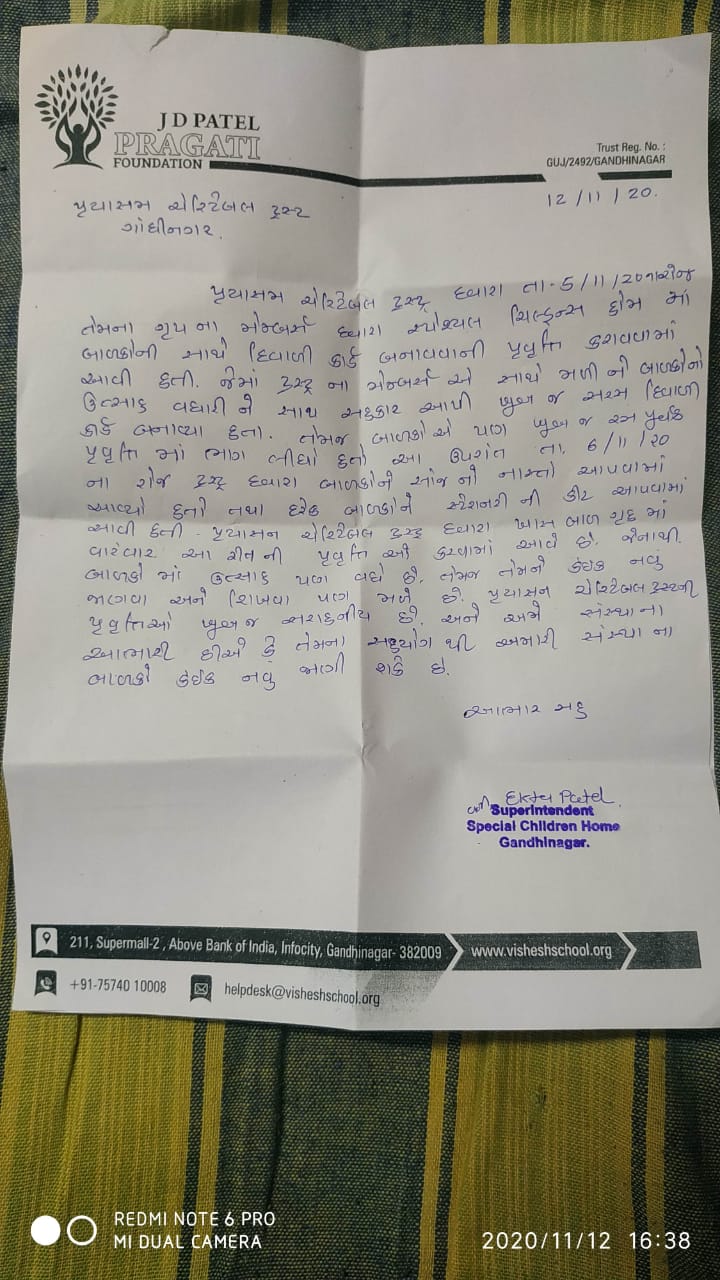 J D PATEL
PRAGATI
FOUNDATION
Trust Reg. No. :
GUJ/2492/GANDHINAGAR
12/11/20.
પ્રયાસમ ચેરિટેબલ ટ્રસ્ટ
ગાંધીનગર.
પ્રયાસમ ચેરિટેબલ ટ્રસ્ટ દ્વારા તા-5/11/20નારોજ
તેમના ગ્રુપ ના મેમ્બર્સ દ્વારા સ્પેશ્યલ ચિલ્ડ્રન્સ હોમ માં
બાળકોની સાથે દિવાળી કાર્ડ બનાવવાની પ્રવૃત્તિ કરાવવામાં
આવી હતી. જેમાં ટ્રસ્ટ ના મેમ્બર્સ એ સાથે મળી ને બાળકોનો
ઉત્સાહ વધારી ને સાથ સહકાર આપી ખુબ જ સરસ દિવાળી
કાર્ડ બનાવ્યા હતા. તેમજ બાળકોએ પણ ખુબ જ રસ પૂર્વક
પ્રવૃત્તિ માં ભાગ લીધો હતો આ ઉપરાંત તા. 6/11/20
ના રોજ ટ્રસ્ટ દ્વારા બાળકોને સાંજ નો નાસ્તો આપવામાં
આવ્યો હતો તથા દરેક બાળકોને સ્ટેશનરી ની કીટ આપવામાં
આવી હતી. પ્રયાસમ ચેરિટેબલ ટ્રસ્ટ દ્વારા ખાસ બાળ ગૃહ માં
વારંવાર આ રીત ની પ્રવૃત્તિ કરવામાં આવે છે. જેનાથી
બાળકો માં ઉત્સાહ પણ વધે છે. તેમજ તેમને કંઇક નવું
જાણવા અને શિખવા પણ મળે છે. પ્રયાસમ ચેરિટેબલ ટ્રસ્ટની
પ્રવૃત્તિઓ ખુબ જ સરાહનીય છે. અને અમે સંસ્થાના
આભારી છીએ કે તેમના સહયોગ થી અમારી સંસ્થા ના
બાળકો કંઇક નવું જાણી શકે છે.
આભાર સહ
Ekta Patel.
Superintendent
Special Children Home
Gandhinagar.
211, Supermall-2, Above Bank of India, Infocity, Gandhinagar- 382009
www.visheshschool.org
+91-75740 10008
helpdesk@visheshschool.org
REDMI NOTE 6 PRO
MI DUAL CAMERA
2020/11/12 16:38